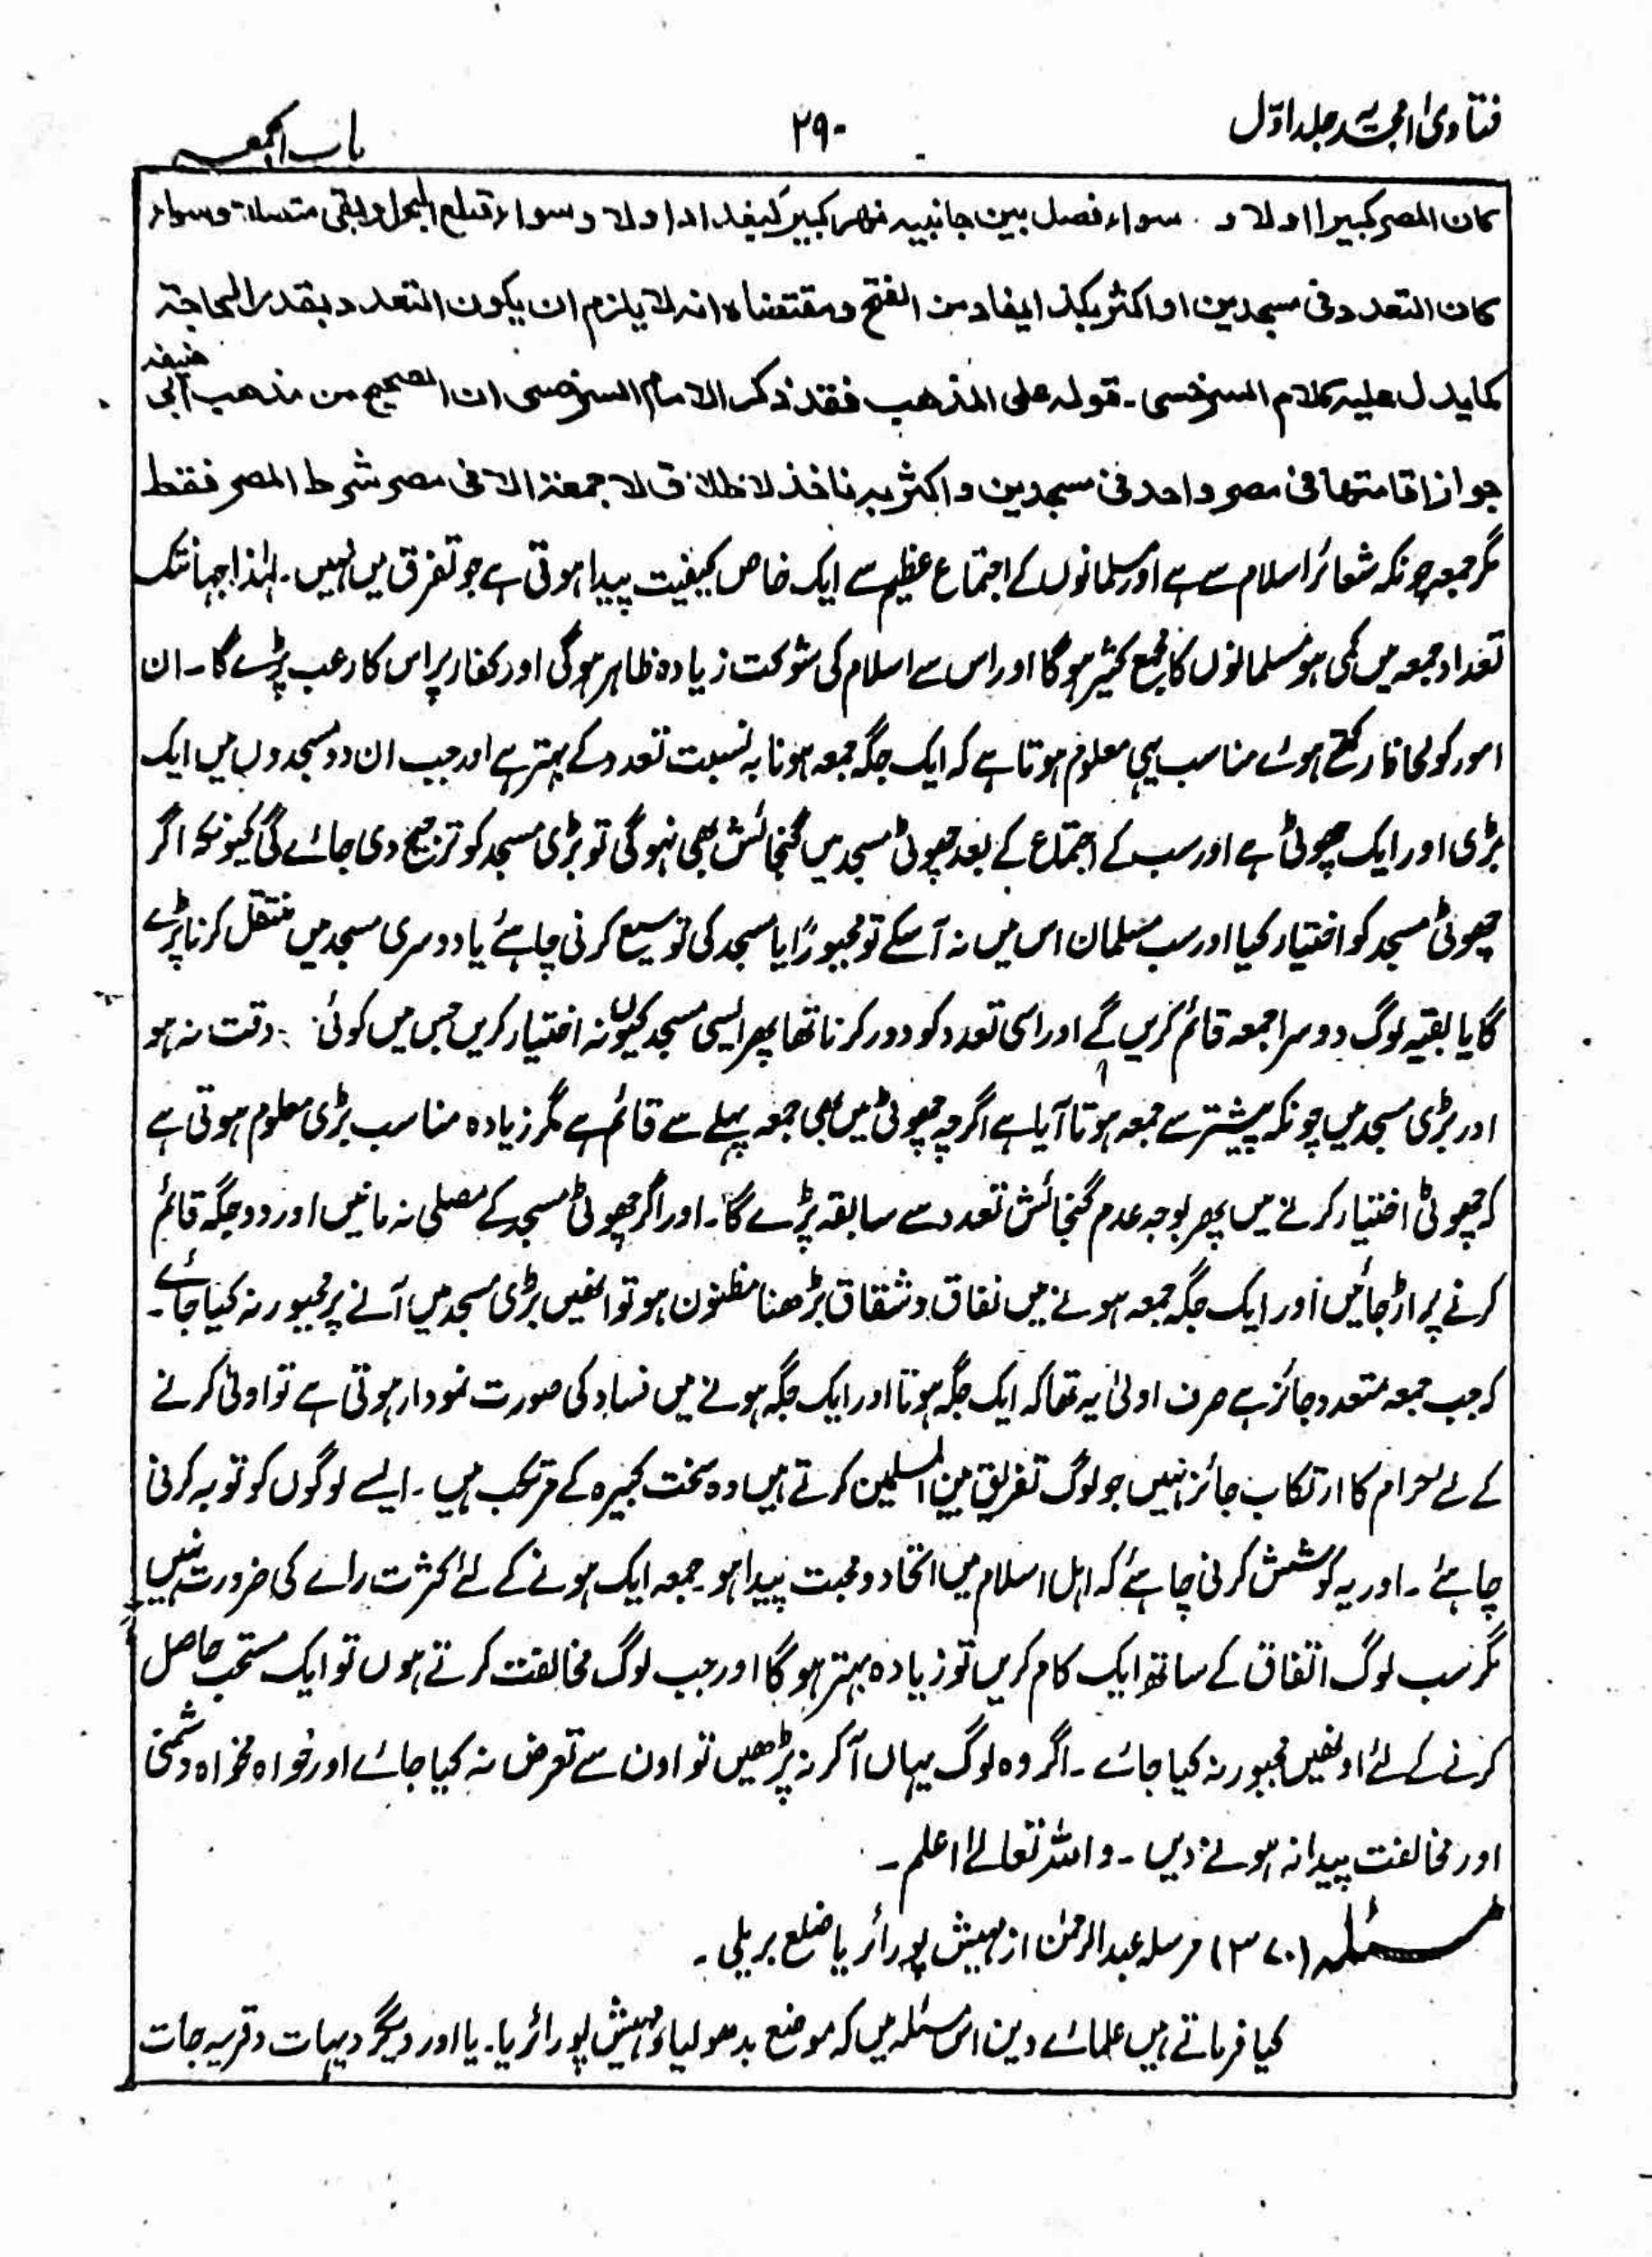 فتاویٰ امجدیہ جلد اوّل
۲۹۰
باب الجمعہ
کان المصر کبیرا اولا و سواء فصل بین جانبیہ نھر کبیر کبغداد اولا و سواء قطع الجسر او بقی متصلا و سواء
کان التعدد فی مسجدین او اکثر ھکذا یفاد من الفتح و مقتضاہ انہ لا یلزم ان یکون التعدد بقدر الحاجۃ
کما یدل علیہ کلام السرخسی ۔ قولہ علی المذھب فقد ذکر الامام السرخسی ان الصحیح من مذھب ابی حنیفہ
جواز اقامتھا فی مصر واحد فی مسجدین و اکثر بہ ناخذ لاطلاق لا جمعۃ الا فی مصر شرط المصر فقط
مگر جمعہ چونکہ شعائر اسلام سے ہے اور مسلمانوں کے اجتماع عظیم سے ایک خاص کیفیت پیدا ہوتی ہے جو تفرق میں نہیں ۔ لہٰذا جہانتک
تعداد جمعہ میں کمی ہو مسلمانوں کا مجمع کثیر ہوگا اور اس سے اسلام کی شوکت زیادہ ظاہر ہوگی اور کفار پر اس کا رعب پڑے گا ۔ ان
امور کو لحاظ رکھتے ہوئے مناسب یہی معلوم ہوتا ہے کہ ایک جگہ جمعہ ہونا بہ نسبت تعدد کے بہتر ہے اور جب ان دو مسجدوں میں ایک
بڑی اور ایک چھوٹی ہے اور سب کے اجتماع کے بعد چھوٹی مسجد میں گنجائش بھی نہوگی تو بڑی مسجد کو ترجیح دی جائے گی کیونکہ اگر
چھوٹی مسجد کو اختیار کیا اور سب مسلمان اس میں نہ آسکے تو مجبوراً یا مسجد کی توسیع کرنی چاہئے یا دوسری مسجد میں منتقل کرنا پڑے
گا یا بقیہ لوگ دوسرا جمعہ قائم کریں گے اور اسی تعدد کو دور کرنا تھا پھر ایسی مسجد کیوں نہ اختیار کریں جس میں کوئی دقت نہ ہو
اور بڑی مسجد میں چونکہ پیشتر سے جمعہ ہوتا آیا ہے اگرچہ چھوٹی میں بھی جمعہ پہلے سے قائم ہے مگر زیادہ مناسب بڑی معلوم ہوتی ہے
کہ چھوٹی اختیار کرنے میں پھر بوجہ عدم گنجائش تعدد سے سابقہ پڑے گا ۔ اور اگر چھوٹی مسجد کے مصلی نہ مانیں اور دو جگہ قائم
کرنے پر اڑ جائیں اور ایک جگہ جمعہ ہونے میں نفاق و شقاق بڑھنا مظنون ہو تو انھیں بڑی مسجد میں آنے پر مجبور نہ کیا جائے ۔
کہ جب جمعہ متعدد جائز ہے صرف اولیٰ یہ تھا کہ ایک جگہ ہوتا اور ایک جگہ ہونے میں فساد کی صورت نمودار ہوتی ہے تو اولیٰ کرنے
کے لئے حرام کا ارتکاب جائز نہیں جو لوگ تفریق بین المسلمین کرتے ہیں وہ سخت کبیرہ کے مرتکب ہیں ۔ ایسے لوگوں کو توبہ کرنی
چاہئے ۔ اور یہ کوشش کرنی چاہئے کہ اہل اسلام میں اتحاد و محبت پیدا ہو جمعہ ایک ہونے کے لئے کثرت رائے کی ضرورت نہیں
مگر سب لوگ اتفاق کے ساتھ ایک کام کریں تو زیادہ بہتر ہوگا اور جب لوگ مخالفت کرتے ہوں تو ایک مستحب حاصل
کرنے کے لئے اونھیں مجبور نہ کیا جائے ۔ اگر وہ لوگ یہاں آکر نہ پڑھیں تو اون سے تعرض نہ کیا جائے اور خواہ مخواہ دشمنی
اور مخالفت پیدا نہ ہونے دیں ۔ واللہ تعالےٰ اعلم ۔
مسئلہ (۳۷۰) مرسلہ عبدالرحمٰن از مہیش پور ائریا ضلع بریلی ۔
کیا فرماتے ہیں علمائے دین اس مسئلہ میں کہ موضع بدھولیا و مہیش پور ائریا ۔ یا اور دیگر دیہات و قریہ جات